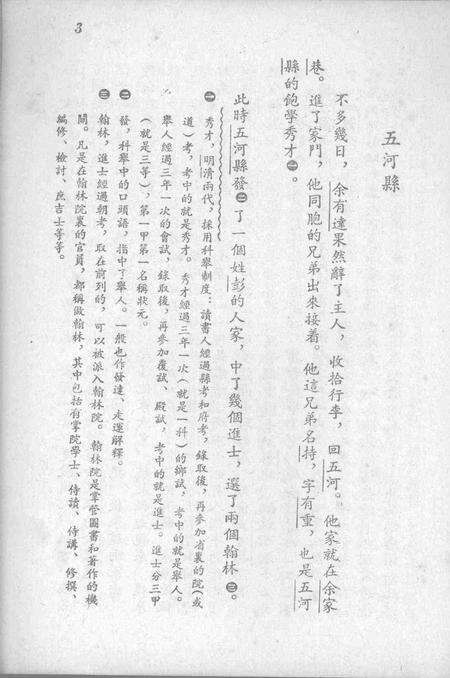 3
五河縣
不多幾日，余有達果然辭了主人，收拾行李，回五河。他家就在余家
巷。進了家門，他同胞的兄弟出來接着。他這兄弟名持，字有重，也是五河
縣的飽學秀才㊀。
此時五河縣發㊁了一個姓彭的人家，中了幾個進士，選了兩個翰林㊂。
㊀ 秀才，明清兩代，採用科舉制度：讀書人經過縣考和府考，錄取後，再參加省裏的院（或
道）考，考中的就是秀才。秀才經過三年一次（就是一科）的鄉試，考中的就是舉人。
舉人經過三年一次的會試，錄取後，再參加覆試、殿試，考中的就是進士。進士分三甲
（就是三等），第一甲第一名稱狀元。
㊁ 發，科舉中的口頭語，指中了舉人。一般也作發達、走運解釋。
㊂ 翰林，進士經過朝考，取在前列的，可以被派入翰林院。翰林院是掌管圖書和著作的機
關。凡是在翰林院裏的官員，都稱做翰林，其中包括有掌院學士、侍讀、侍講、修撰、
編修、檢討、庶吉士等等。